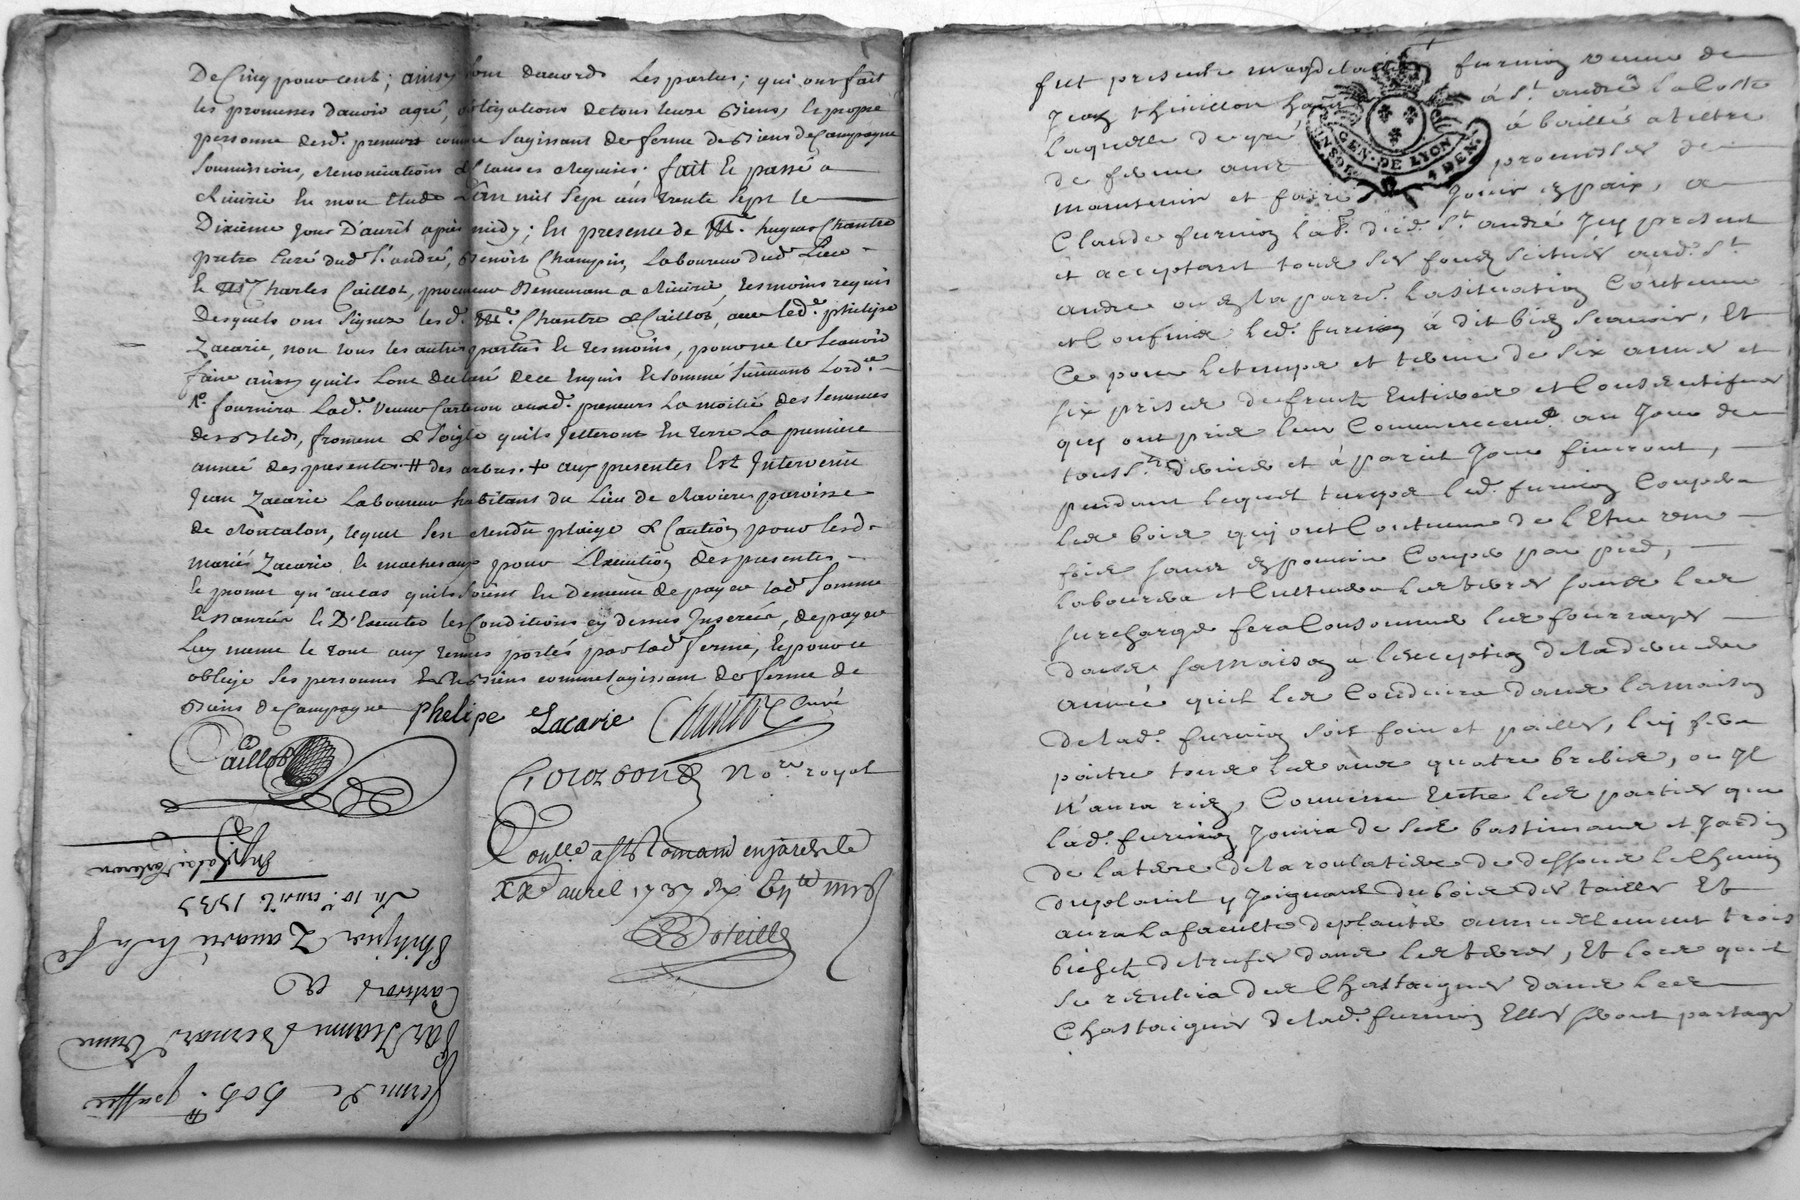 De Cinq pour cent; ainsy sont dacord les parties; qui ont fait
les promesses d'avoir agré, obligations de tous leurs Biens, le propre
personne desd. preneurs comme sagissant de ferme de Biens de Campagne
Soumissions, Renonciations & Clauses Requises. fait et passé a
Riverie En mon Etude L'an mil Sept cens trente Sept le
Dixieme jour D'avril après midy; En presence de Me. hugues Chantre
pretre Curé dud. St. andré, Benoit Champin, Laboureur dud. Lieu
et Me Charles Caillot, procureur demeurant a Riverie, tesmoins requis
Desquels ont Signez lesd. Me. Chantre & Caillot, avec led. phelipe
Zacarie, non tous les autres parties et tesmoins, pour ne le Scavoir
faire ainsy quils l'ont declaré de ce Enquis et sommé Suivant Lord.ce
fournira Lad. Veuve Carteron auxd. preneurs La moitié des Semences
des Bleds, froment & Soigle quils Jetteront En terre La premiere
année des presentes. # des arbres. + aux presentes Est Intervenu
Jean Zacarie Laboureur habitant du Lieu de Raviere paroisse
de Rontalon, lequel s'est Rendu pleige & Caution pour lesd.
mariés Zacarie et pour L'Execution des presentes
et promet qu'au cas quils soient En Demeure de payer lad. Somme
et D'Executer les Conditions cy dessus Inserées, de payer
Luy meme le tout aux termes portés par lad. ferme, et pour ce
oblige ses personnes et Biens comme sagissant de ferme de
Biens de Campagne phelipe Zacarie Chantre Curé
Caillot
No.re royal
Coulle a St Romand en jarets le
XXe avril 1737
Boteille
ferme de 60 #
par Jeanne Bernard Veuve
Carteron a
Philipe Zacarie
Du 10e avril 1737
fut presente magdelaine furnion veuve de
Jean thivillon à St. andré la Coste
laquelle de gré à baillé a tiltre
de ferme avec promesses de
maintenir et faire Jouir en paix, a
Claude furnion lab. dud. St. andré Icy present
et acceptant tous ses fonds scitués aud. St.
andré ou en la parr. la situation Contenue
et Confins led. furnion à dit bien scavoir, Et
Ce pour le temps et terme de six années et
six prises de fruits Entieres et Consecutives
quy ont pris leur Commencement au Jour de
touss.ts dernier et à pareil Jour finiront,
pendant lequel temps led. furnion Coupera
les bois quy ont Coutume de l'Etre une
fois sans en pouvoir Couper par pied,
labourera et Cultivera les terres sans les
surcharger fera Consommer les fourrages
dans sa maison à l'exception de la derniere
année quil les Conduira dans la maison
de lad. furnion soit foin et pailles, luy fera
paitre tous les ans quatre brebis, ou Il
N'aura rien, Convenu Entre les parties que
lad. furnion Jouira de ses bastimans et Jardin
de la terre de la roulatiere de dessous le Chemin
du plantil y Joignant du bois des tailles Et
aura la faculté de planter annuellement trois
bichets de trufes dans les terres, Et lors quil
se rentira des Chastaignes dans les
Chastaigners de lad. furnion Elles seront partagé
GEN. DE LYON
4 DEN.